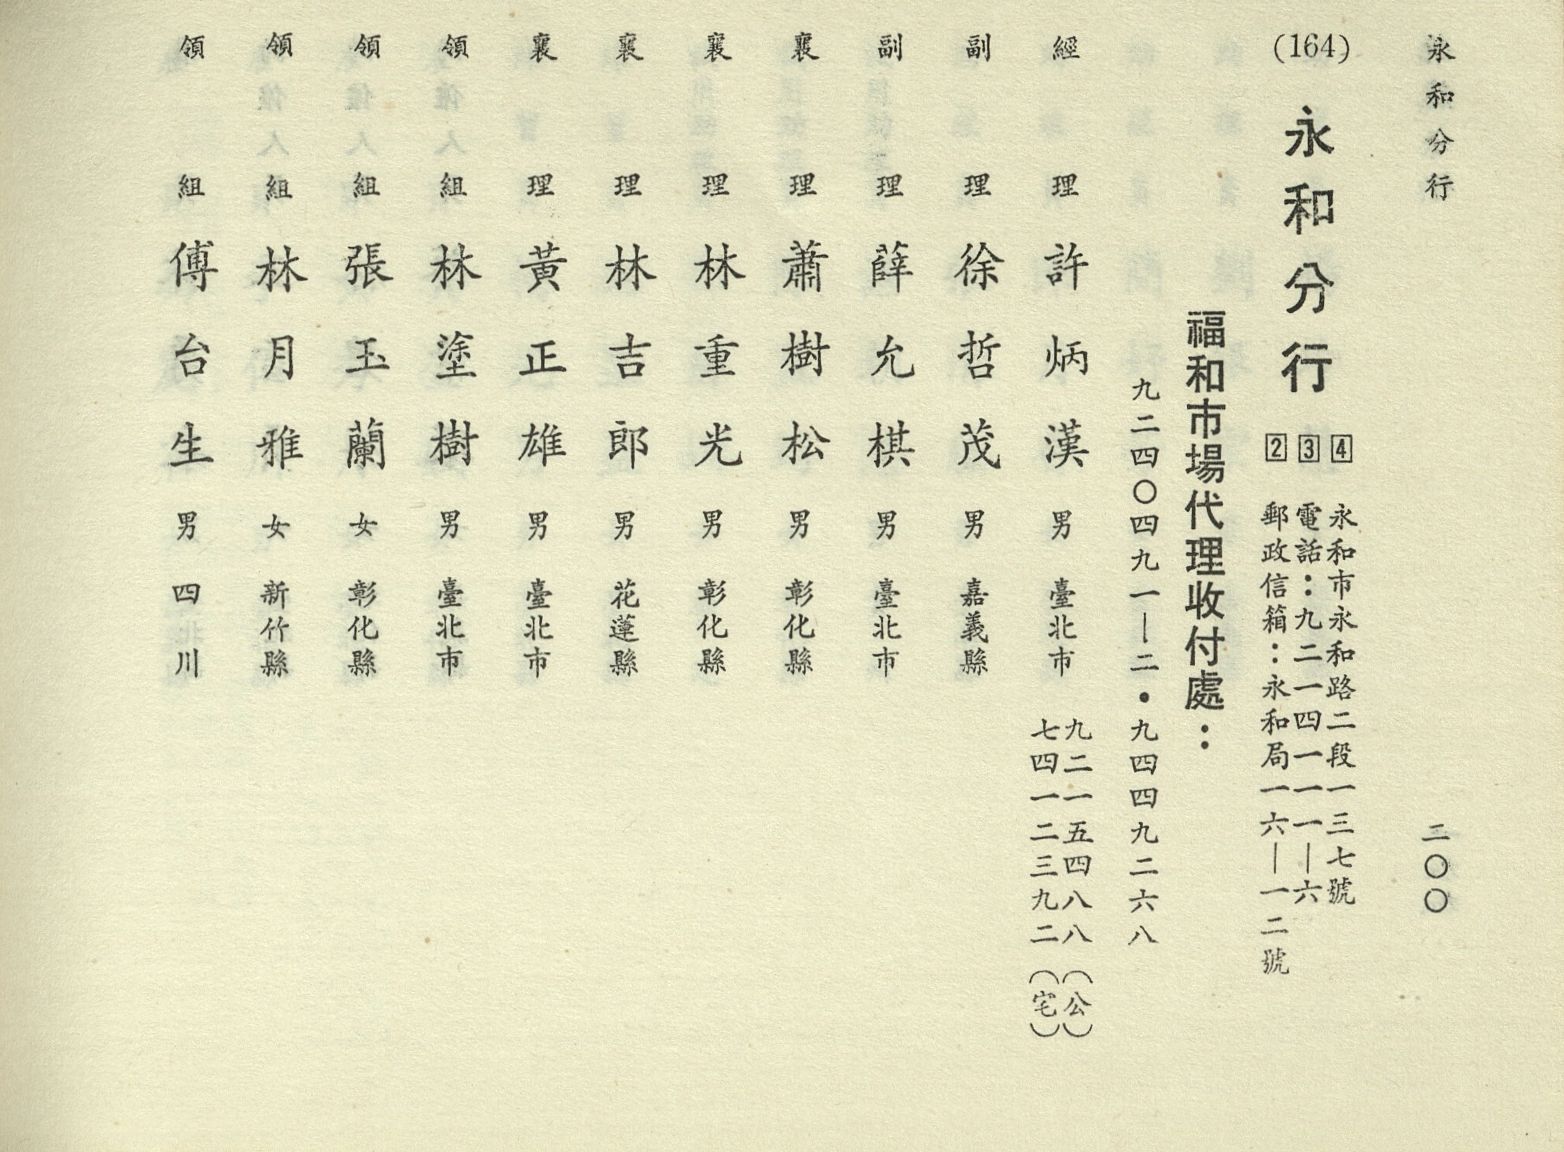 永和分行
二〇〇
(164)
永和分行
4 永和市永和路二段一三七號
3 電話：九二一四一一一—六
2 郵政信箱：永和局一六—一二號
福和市場代理收付處：
九二四〇四九一—二・九四四九二六八
經理 許炳漢 男 臺北市 九二一五四八八（公）
七四一二三九二（宅）
副理 徐哲茂 男 嘉義縣
副理 薛允棋 男 臺北市
襄理 蕭樹松 男 彰化縣
襄理 林重光 男 彰化縣
襄理 林吉郎 男 花蓮縣
襄理 黃正雄 男 臺北市
領組 林塗樹 男 臺北市
領組 張玉蘭 女 彰化縣
領組 林月雅 女 新竹縣
領組 傅台生 男 四川